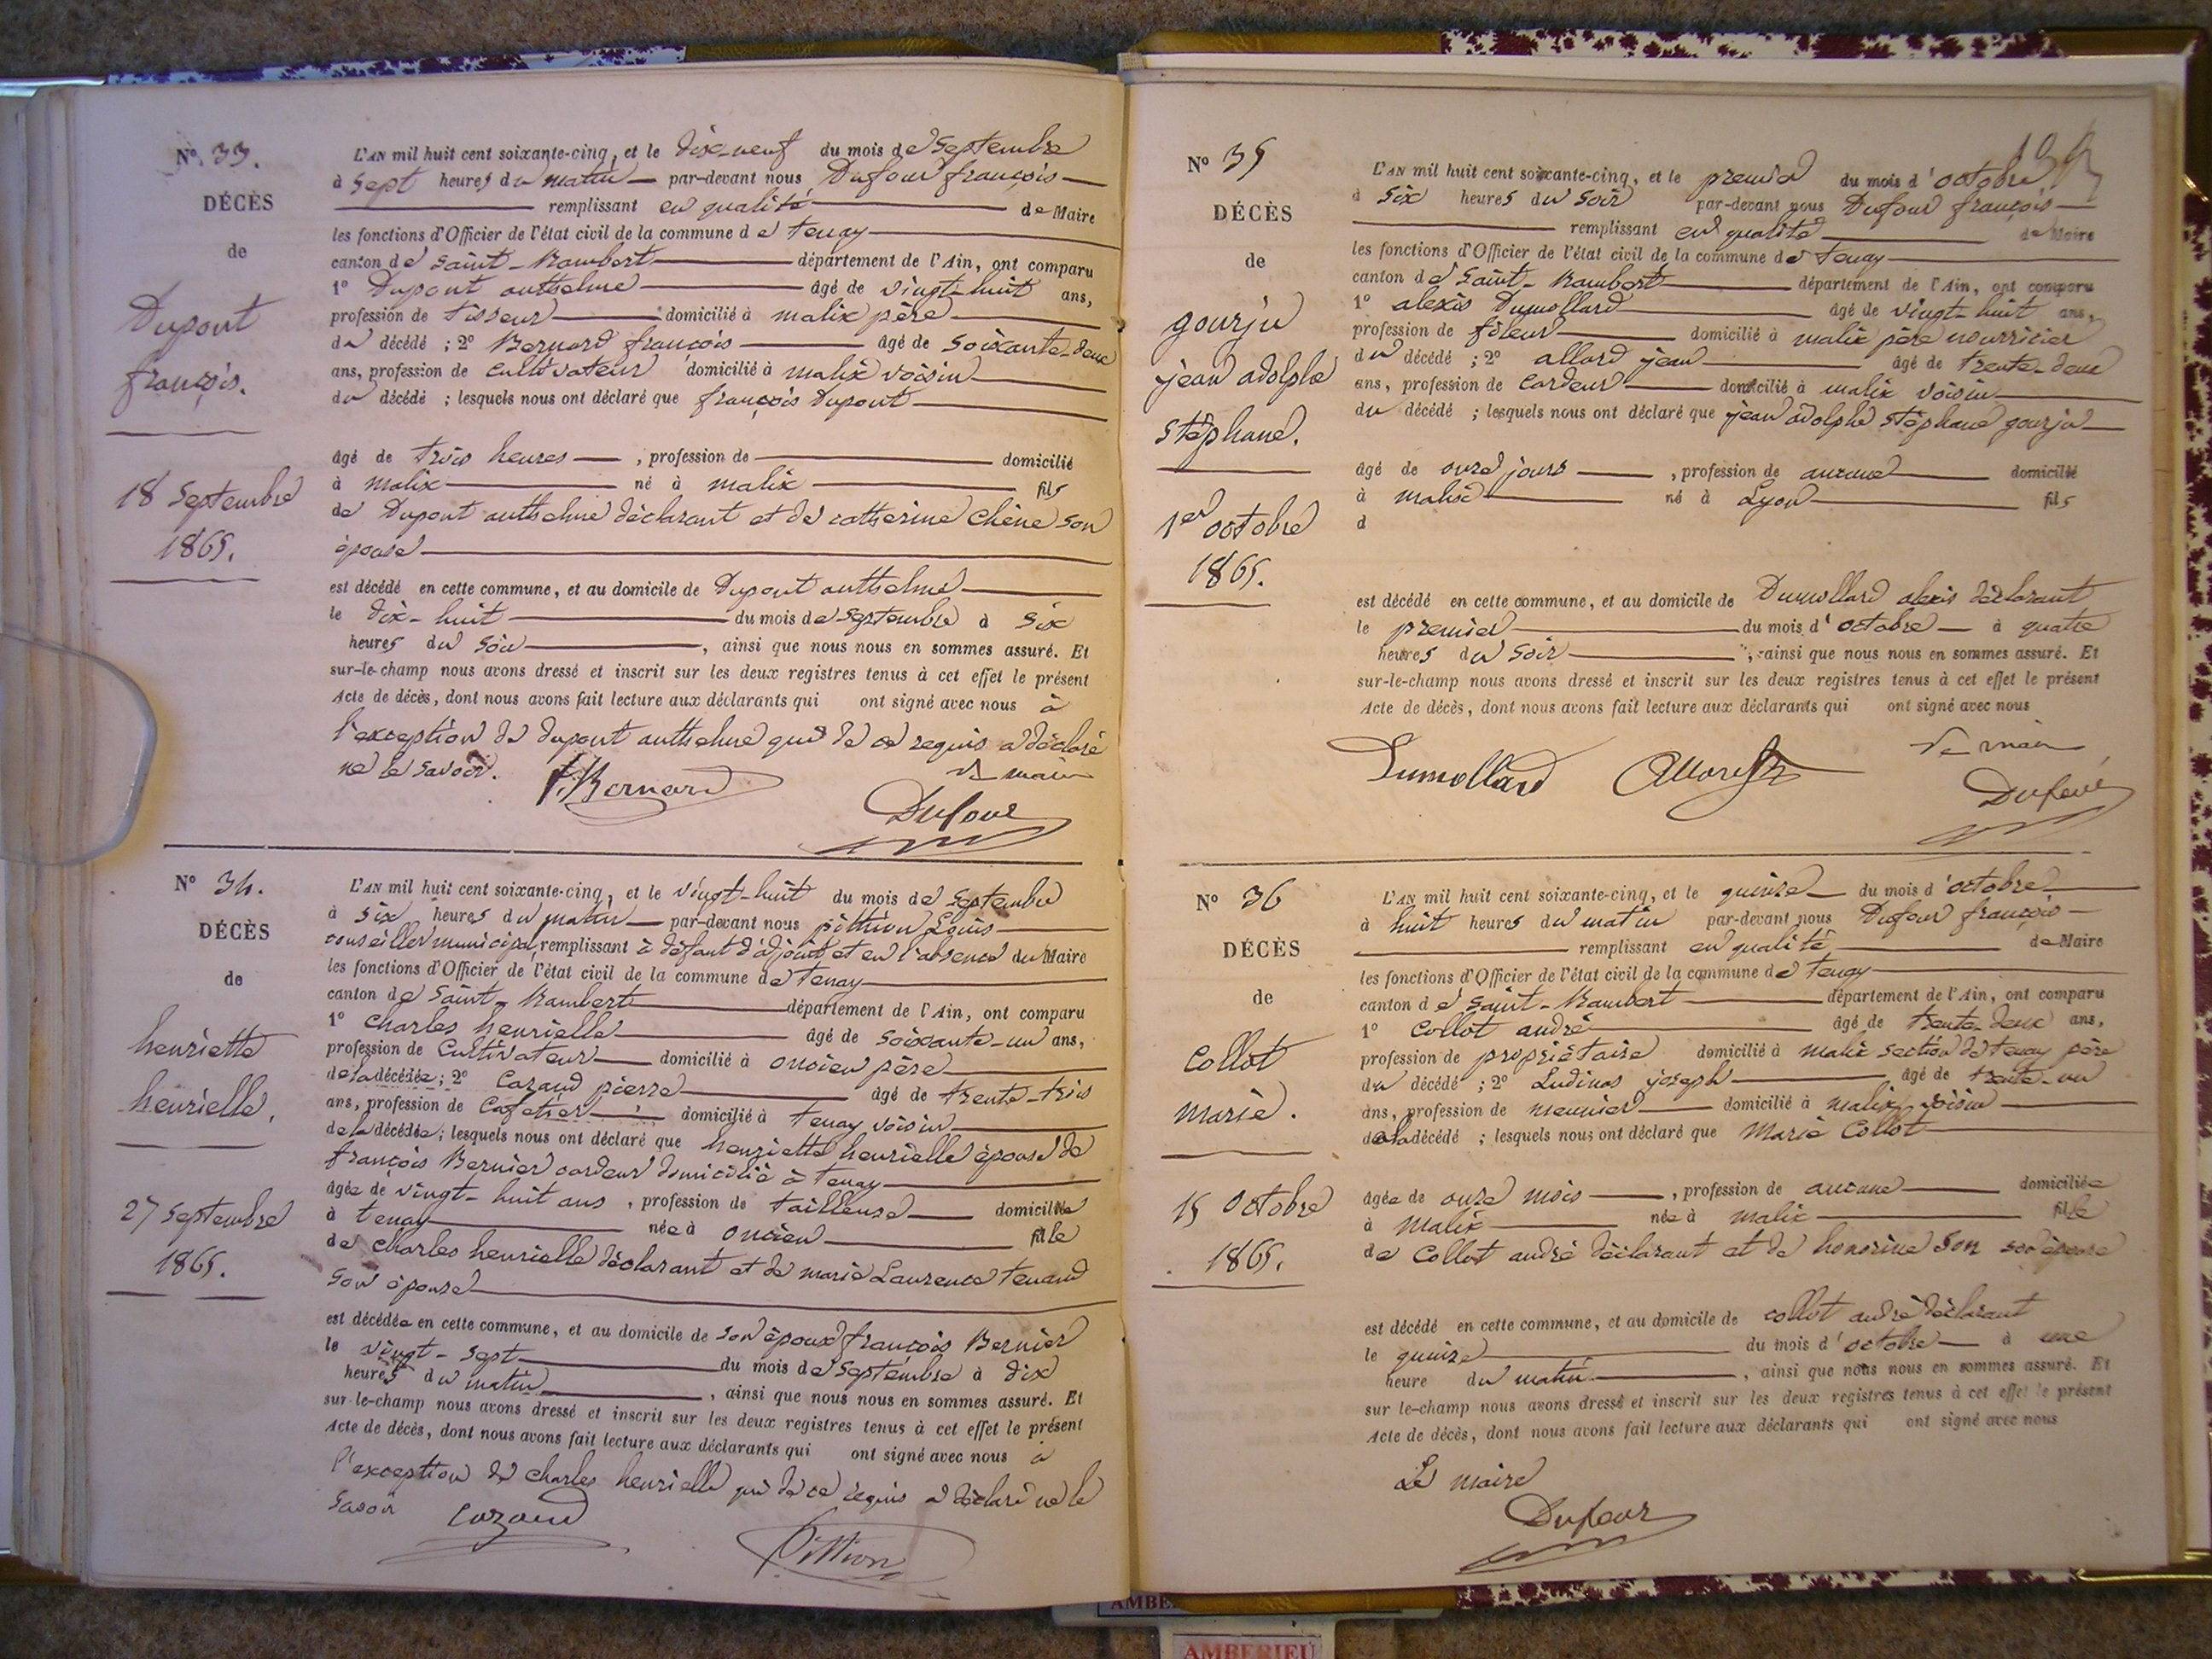 N° 33.
DÉCÈS
de
Dupont
françois.
18 Septembre
1865.
L'AN mil huit cent soixante-cinq, et le dix-neuf du mois de Septembre
à sept heures du matin par-devant nous Dufour françois
remplissant en qualité de Maire
les fonctions d'Officier de l'état civil de la commune de tenay
canton de Saint-Rambert département de l'Ain, ont comparu
1° Dupont anthelme âgé de vingt-huit ans,
profession de tisseur domicilié à malix père
du décédé ; 2° Bernard françois âgé de soixante-deux
ans, profession de cultivateur domicilié à malix voisin
du décédé ; lesquels nous ont déclaré que françois Dupont
âgé de trois heures, profession de domicilié
à malix né à malix fils
de Dupont anthelme déclarant et de catherine Chêne son
épouse
est décédé en cette commune, et au domicile de Dupont anthelme
le dix-huit du mois de septembre à six
heures du soir, ainsi que nous nous en sommes assuré. Et
sur-le-champ nous avons dressé et inscrit sur les deux registres tenus à cet effet le présent
Acte de décès, dont nous avons fait lecture aux déclarants qui ont signé avec nous à
l'exception de dupont anthelme qui de ce requis a déclaré
ne le savoir.
f. Bernard
Le maire
Dufour
N° 34.
DÉCÈS
de
henriette
henrielle.
27 septembre
1865.
L'AN mil huit cent soixante-cinq, et le vingt-huit du mois de Septembre
à six heures du matin par-devant nous pittion Louis
conseiller municipal, remplissant à défaut d'adjoint et en l'absence du Maire
les fonctions d'Officier de l'état civil de la commune de tenay
canton de Saint-Rambert département de l'Ain, ont comparu
1° Charles henrielle âgé de soixante-un ans,
profession de Cultivateur domicilié à oncieu père
de la décédée ; 2° Cozand pierre âgé de trente-trois
ans, profession de Cafetier domicilié à tenay voisin
de la décédée ; lesquels nous ont déclaré que henriette henrielle épouse de
françois Bernier cardeur domicilié à tenay
âgée de vingt-huit ans, profession de tailleuse domiciliée
à tenay née à oncieu fille
de charles henrielle déclarant et de marie Laurence tenand
son épouse
est décédée en cette commune, et au domicile de son époux françois Bernier
le vingt-sept du mois de Septembre à dix
heures du matin, ainsi que nous nous en sommes assuré. Et
sur-le-champ nous avons dressé et inscrit sur les deux registres tenus à cet effet le présent
Acte de décès, dont nous avons fait lecture aux déclarants qui ont signé avec nous à
l'exception de charles henrielle qui de ce requis a déclaré ne le
savoir
Cozand
Pittion
N° 35
DÉCÈS
de
gourju
jean adolphe
stéphane.
1er octobre
1865.
L'AN mil huit cent soixante-cinq, et le premier du mois d'octobre
à six heures du soir par-devant nous Dufour françois
remplissant en qualité de Maire
les fonctions d'Officier de l'état civil de la commune de tenay
canton de Saint-Rambert département de l'Ain, ont comparu
1° alexis Dumollard âgé de vingt-huit ans,
profession de fileur domicilié à malix père nourricier
du décédé ; 2° allard jean âgé de trente-deux
ans, profession de cardeur domicilié à malix voisin
du décédé ; lesquels nous ont déclaré que jean adolphe stéphane gourju
âgé de onze jours, profession de aucune domicilié
à malix né à Lyon fils
d
est décédé en cette commune, et au domicile de Dumollard alexis déclarant
le premier du mois d'octobre à quatre
heures du soir, ainsi que nous nous en sommes assuré. Et
sur-le-champ nous avons dressé et inscrit sur les deux registres tenus à cet effet le présent
Acte de décès, dont nous avons fait lecture aux déclarants qui ont signé avec nous
Dumollard
Le maire
Dufour
N° 36
DÉCÈS
de
Collot
marie.
15 Octobre
1865.
L'AN mil huit cent soixante-cinq, et le quinze du mois d'octobre
à huit heures du matin par-devant nous Dufour françois
remplissant en qualité de Maire
les fonctions d'Officier de l'état civil de la commune de tenay
canton de Saint-Rambert département de l'Ain, ont comparu
1° Collot andré âgé de trente-deux ans,
profession de propriétaire domicilié à malix section de tenay père
du décédé ; 2° Ludinas joseph âgé de trente-un
ans, profession de meunier domicilié à malix voisin
de la décédé ; lesquels nous ont déclaré que Marie Collot
âgée de onze mois, profession de aucune domiciliée
à malix née à malix fille
de Collot andré déclarant et de honorine Son son épouse
est décédé en cette commune, et au domicile de collot andré déclarant
le quinze du mois d'octobre à une
heure du matin, ainsi que nous nous en sommes assuré. Et
sur le-champ nous avons dressé et inscrit sur les deux registres tenus à cet effet le présent
Acte de décès, dont nous avons fait lecture aux déclarants qui ont signé avec nous
Le maire
Dufour
AMBERIEU